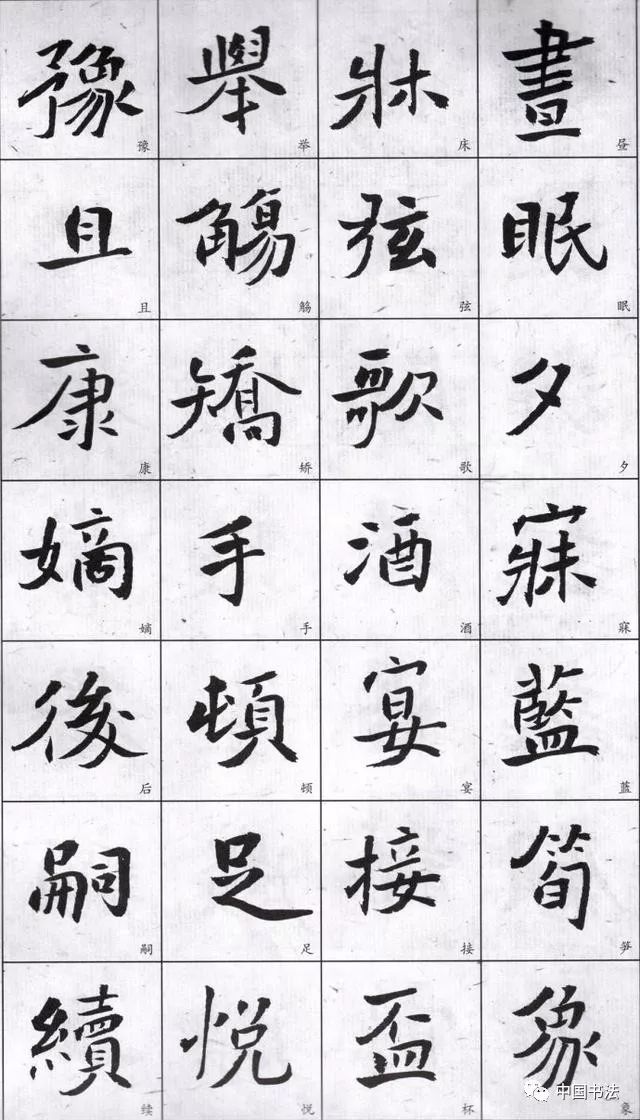 晝眠夕寐藍筍象
昼眠夕寐蓝笋象
牀弦歌酒宴接盃
床弦歌酒宴接杯
舉觴矯手頓足悦
举觞矫手顿足悦
豫且康嫡後嗣續
豫且康嫡后嗣续
中国书法